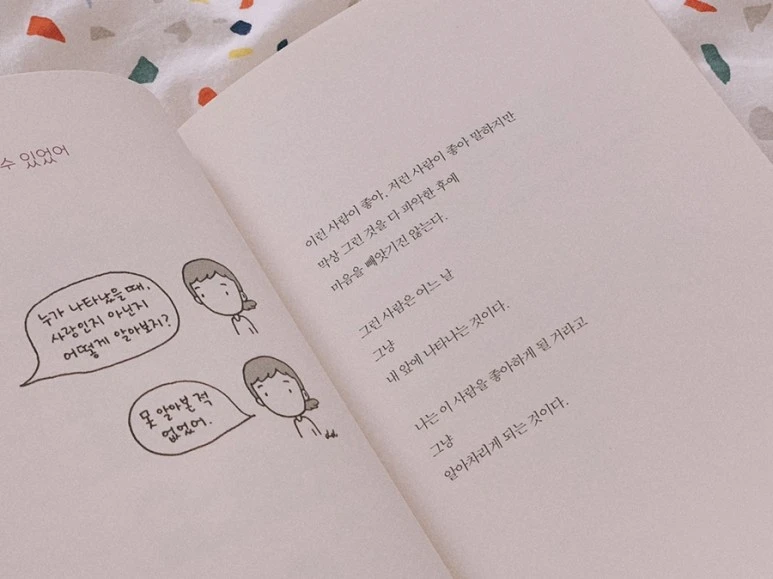 수 있었어
누가 나타났을 때,
사랑인지 아닌지
어떻게 알아보지?
못 알아본 적
없었어.
이런 사람이 좋아. 저런 사람이 좋아 말하지만
막상 그런 것을 다 파악한 후에
마음을 빼앗기진 않는다.
그런 사람은 어느 날
그냥
내 앞에 나타나는 것이다.
나는 이 사람을 좋아하게 될 거라고
그냥
알아차리게 되는 것이다.